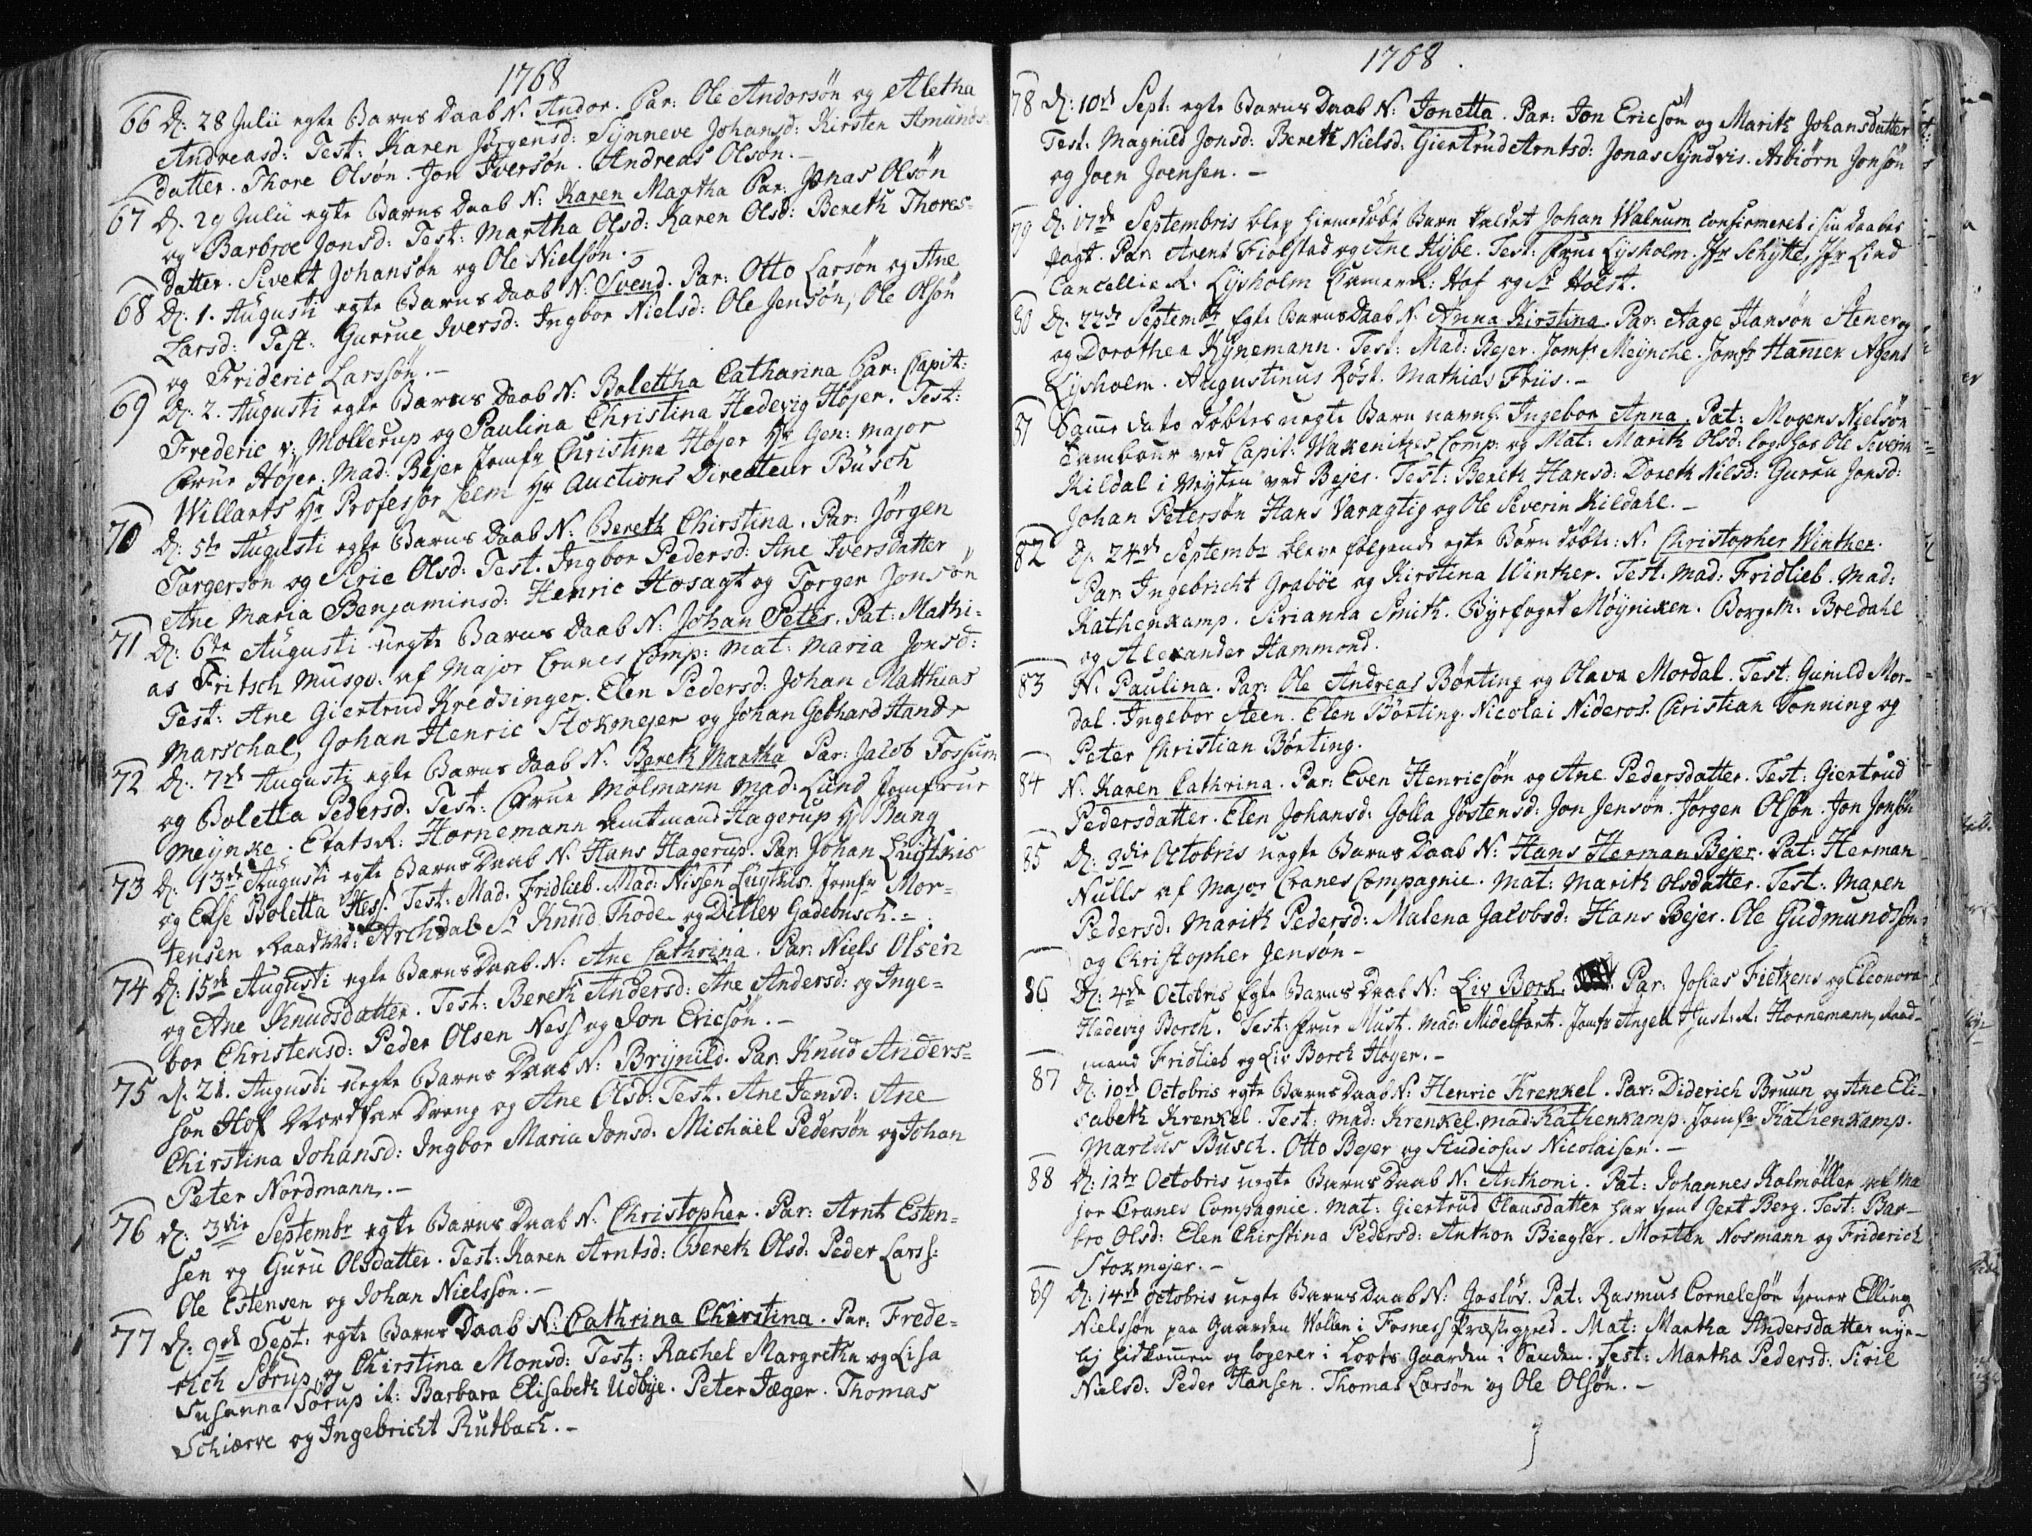 1768
66 D: 28 Julii egte Barns Daab N. Andor. Par: Ole Andorsøn og Aletha
Andreasd: Test: Karen Jørgensd: Synneve Johansd: Kirsten Amunds
datter. Thore Olsøn. Jon Iversøn. Andreas Olsøn. -
67 D. 29 Julii egte Barns Daab N: Karen Martha Par: Jonas Olsøn
og Barbroe Jonsd: Test: Martha Olsd: Karen Olsd: Bereth Thores-
datter. Sivert Johansøn og Ole Nielsøn.
68 D: 1. Augusti egte Barns Daab N: Svend. Par: Otto Larsøn og Ane
Larsd: Test: Gurrue Iversd: Ingbor Nielsd: Ole Jensøn, Ole Olsøn
og Frideric Larssøn. -
69 D: 2. Augusti egte Barns Daab N: Bolettha Catharina Par: Capit:
Frederic v: Mollerup og Paulina Christina Hedevig Højer. Test:
Frue Højer. Mad: Bejer Jomfr Christina Højer Hr Gen: major
Willarts Hr Professor Leem Hr Auctions Directeur Büsch
70 D: 5te Augusti egte Barns Daab N: Bereth Chirstina. Par: Jørgen
Torgersøn og Sirie Olsd: Test. Ingbor Pedersd: Ane Iversdatter
Ane Maria Benjaminsd: Henric Hosagt og Torger Jonsøn
71 D: 6te Augusti uegte Barns Daab N: Johan Peter. Pat: Mathi-
as Fritsch Musqv: af Major Cranes Comp: Mat: Maria Jonsd:
Test: Ane Giertrud Kredsinger. Elen Pedersd: Johan Matthias
Marschal, Johan Henric Stokmejer og Johan Gebhard Handr
72 D: 7de Augusti egte Barns Daab N: Bereth Martha Par: Jacob Fossum
og Boletta Pedersd: Test: Frue Molmann Mad: Lund Jomfrue
Meynke. EtatsR: Hornemann Amtmand Hagerup Hr Bang
73 D: 13de Augusti egte Barns Daab N. Hans Hagerup. Par: Johan Luytkis
og Else Boletta Hess. Test: Mad. Fridlieb. Mad: Nissen Luytkis. Jomfr Mor-
tensen Raadm: Archdal Sr Knud Thode og Ditlev Gadebusch. -
74 D: 15de Augusti egte Barns Daab. N: Ane Cathrina. Par: Niels Olsen
og Ane Knudsdatter. Test: Bereth Andersd: Ane Andersd: og Inge-
bor Christensd: Peder Olsen Ness og Jon Ericsøn. -
75 D. 21. Augusti uegte Barns Daab N: Brynild. Par: Knud Anders-
søn Hof Nordfar Dreng og Ane Olsd: Test. Ane Jensd: Ane
Chirstina Johansd: Ingbor Maria Jonsd: Michael Pedersøn og Johan
Peter Nordmann. -
76 D: 3die Septembr egte Barns Daab N: Christopher. Par: Arnt Esten-
sen og Guru Olsdatter. Test: Karen Arntsd: Bereth Olsd: Peder Larss:
Ole Estensen og Johan Nielssøn. -
77 D: 9de Sept: egte Barns Daab N: Cathrina Chirstina. Par: Frede-
rich Sørup og Chirstina Monsd: Test: Rachel Margretha og Lisa
Susanna Sørup it: Barbara Elisabeth Udbye. Peter Jæger. Thomas
Schiærve og Ingebricht Rutbach. -
1768.
78 D: 10de Sept: egte Barns Daab N: Jonetta. Par: Jon Ericsøn og Marith Johansdatter
Test: Magnild Jonsd: Bereth Nielsd: Giertrud Arntsd: Jonas Syndvis. Asbiørn Jonsøn
og Joen Joensen. -
79 D: 17de Septembris blev hiemedøbt Barn kaldet Johan Walnum confirmeret i sin daabes
Pagt. Par: Arent Fiolstad og Ane Hybe. Test: Frue Lysholm. Jfr Schytte, Jfr Lind
CancellieR. Lysholm CammerR: Hof og Sr Holst.
80 D: 22de Septembr Egte Barns Daab N: Anna Kirstina. Par: Aage Hansøn Stener og
og Dorothea Rynemann. Test: Mad: Bejer. Jomfr Meynche. Jomfr Hammer Agent
Lysholm. Augustinus Røst. Mathias Friis. -
81 Samme dato døbtes uegte Barn navnl: Ingebor Anna. Pat: Mogens Nielsøn
Tambour ved Capit: Wakenitzes Comp: og Mat: Marith Olsd: log: hos Ole Severin
Kildal i Mynten ved Bejer. Test: Berith Hansd: Doreth Nilsd: Gurru Jonsd:
Johan Petersøn Hans Varagtig og Ole Severin Kildahl. -
82 D: 24de Septembr bleve følgende egte Børn døbte: N. Christopher Winther.
Par: Ingebricht Grabøe og Kirstina Winther. Test: Mad: Fridlieb. Mad:
Kathenkamp. Sirianna Smith. Byefoged Møynichen. Borgem: Bredahl
og Alexander Hammond.
83 N: Paulina. Par: Ole Andreas Børting og Olava Mordal. Test: Gunild Mor-
dal. Ingebor Steen. Elen Børting. Nicolai Nideros. Christian Tønning og
Peter Christian Børting.
84 N: Karen Cathrina. Par: Even Henricsøn og Ane Pedersdatter. Test: Giertrud
Pedersdatter. Elen Johansd: Jolla Jøstensd: Jon Jensøn. Jørgen Olsøn. Jon Jonsøn
85 D: 3die Octobris uegte Barns Daab N: Hans Herman Bejer. Pat: Herman
Nulls af Major Cranes Compagnie. Mat: Marith Olsdatter. Test: Maren
Pedersd: Marith Pedersd: Malena Jacobsd: Hans Bejer. Ole Gudmundsøn
og Christopher Jensøn -
86 D: 4de Octobris Egte Barns Daab N: Liv Bork. Par: Josias Fietkens og Eleonora
Hedevig Borch. Test: Frue Must. Mad: Midelfart. Jomfr Angell Just:R: Hornemann, Raad-
mand Fridlieb og Liv Borch Høyer. -
87 D: 10de Octobris egte Barns Daab N: Henric Krenkel. Par: Diderich Bruun og Ane Eli-
sabeth Krenkel. Test: Mad: Krenkel. Mad: Kathenkamp. Jomfr Kathenkamp.
Marcus Busch. Otto Bejer og Studiosus Nicolaisen. -
88 D: 12te Octobris uegte Barns Daab N: Anthoni. Pat: Johannes Kalmøller af Ma
jor Cranes Compagnie. Mat: Giertrud Clausdatter har tjent Gert Berg. Test: Bar-
bro Olsd: Elen Chirstina Pedersd: Anthon Biegler. Morten Nosmann og Friderich
Stokmejer. -
89 D: 14de Octobris uegte Barns Daab N: Josløs. Pat: Rasmus Cornelesøn tjener Elling
Nielssøn paa Gaarden Wollen i Fosness Præstegield. Mat: Martha Andersdatter nye-
lig hidkommen og logerer i Loots Gaarden i Sanden. Test: Martha Pedersd: Sirie
Nielsd: Peder Hansen. Thomas Larsøn og Ole Olsøn. -